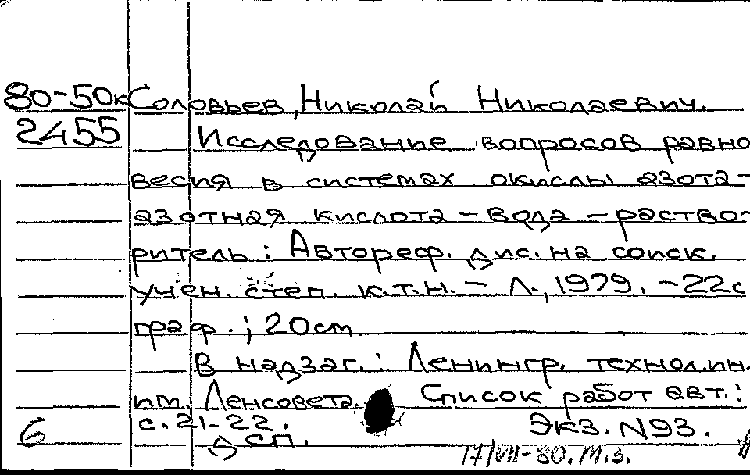 80-50к Соловьев, Николай Николаевич.
2455 Исследование вопросов равно
весия в системах окислы азота-
азотная кислота - вода - раство-
ритель: Автореф. дис. на соиск.
учен. степ. к.т.н. - Л., 1979. - 22с
граф.; 20см
В надзаг.: Ленингр. технол. ин.
им. Ленсовета. Список работ авт.:
с. 21-22. Экз. N93.
6 сп.
17/VII-80. М.з.